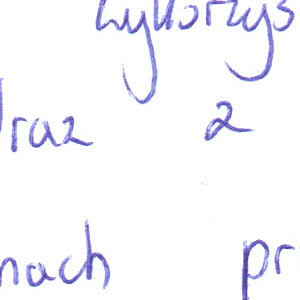 wykorzys
raz z
nach pr